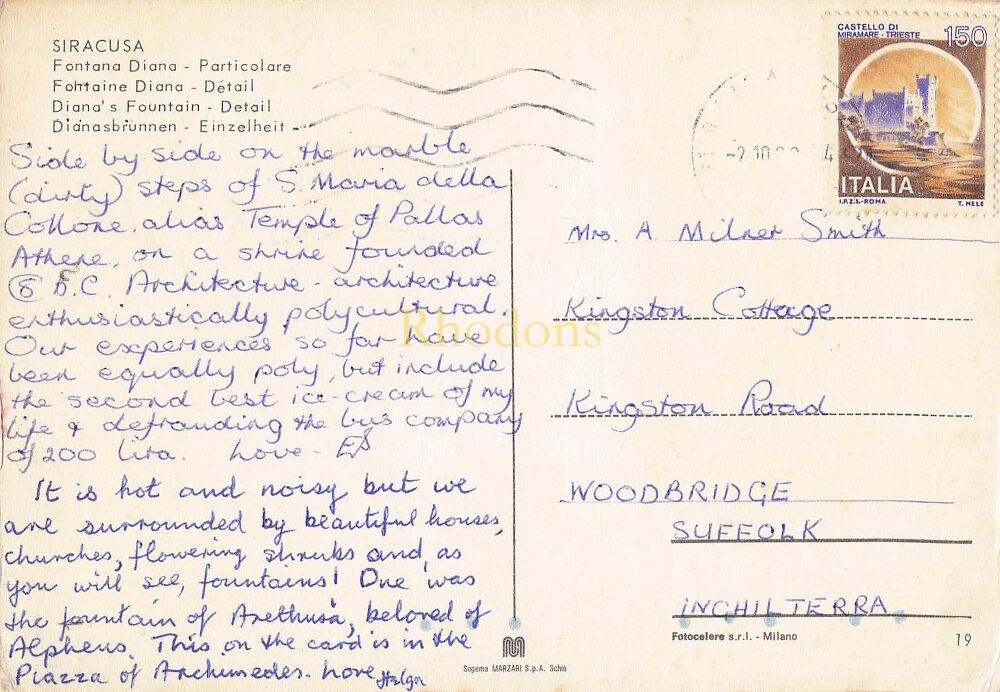 SIRACUSA
Fontana Diana - Particolare
Fontaine Diana - Détail
Diana's Fountain - Detail
Dianasbrunnen - Einzelheit
Side by side on the marble
(dirty) steps of S. Maria della
Collone, alias Temple of Pallas
Athene, on a shrine founded
6 B.C. Architecture - architecture
enthusiastically polycultural.
Our experiences so far have
been equally poly, but include
the second best ice-cream of my
life & defrauding the bus company
of 200 lira. Love - ES
It is hot and noisy but we
are surrounded by beautiful houses,
churches, flowering shrubs and, as
you will see, fountains! One was
the fountain of Arethusa, beloved of
Alpheus. This on the card is in the
Piazza of Archimedes. Love Helga
CASTELLO DI
MIRAMARE · TRIESTE
150
ITALIA
I.P.Z.S.-ROMA T. MELE
-2.10
Mrs. A. Milner Smith
Kingston Cottage
Kingston Road
WOODBRIDGE
SUFFOLK
INGHILTERRA
Rhodons
Fotocelere s.r.l. - Milano
19
Sogema MARZARI S.p.A. Schio